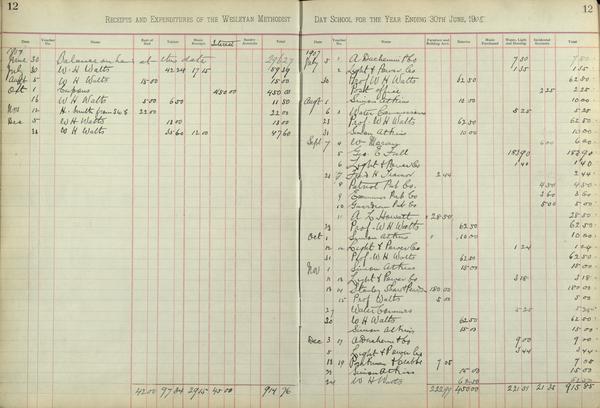 12
RECEIPTS AND EXPENDITURES OF THE WESLEYAN METHODIST
Date Voucher No. Name Rent of Hall Tuition Music Receipts Interest Sundry Accounts Total
1907
June 30 Balance on hand at this date
July 30 W. H. Watts 42.24 17.15 59.39
Aug't 5 W H Watts 15.00 15.00
Oct 1 Coupons 450.00 450.00
16 W H Watts 5.00 6.50 11.50
Nov 12 22.00 22.00
Dec 5 W H Watts 13.00 13.00
31 W H Watts 35.60 12.00 47.60
42.00 97.34 29.15 45.00 914 76
DAY SCHOOL FOR THE YEAR ENDING 30TH JUNE, 190
12
Date Voucher No. Name Furniture and Building Acct. Salaries Music Purchased Water, Light and Heating Incidental Accounts Total
1907
July 5 1 7.50 7.50
2 Light & Power Co 1.35 1.35
30 Prof W H Watts 62.50 62.50
Post office 2.25 2.25
Aug't 1 Simon Atkins 10.00 10.00
6 Water Commissioners 5.25 5.20
Prof W H Watts 62.50 62.50
31 Simon Atkins 10.00 10.00
Sept 7 4 6.00 6.00
5 Geo E Full 183.90 183.90
6 Light & Power Co 1.40 1.40
7 Trainor 2.44 2.44
8 Patriot Pub Co. 4.50 4.50
9 Examiner Pub Co 3.60 3.60
10 Guardian Pub Co 5.00 5.00
11 A L Howatt 28.50 28.50
Prof. W H Watts 62.50 62.50
Oct 1 Simon Atkins 10.00 10.00
12 Light & Power Co 1.24 1.24
31 Prof W H Watts 62.50 62.50
Nov 1 Simon Atkins 15.00 15.00
11 13 Light & Power Co 3.18 3.18
14 180.00 180.00
15 Prof Watts 5.00 5.00
27 Water Commrs 5.25 5.25
30 W H Watts 62.50 62.50
Simon Atkins 15.00 15.00
Dec 3 17 9.00 9.00
5 Light & Power Co 3.44 3.44
18 19 7.05 7.05
Simon Atkins 15.00 15.00
24 W H Watts 62.50 62.50
222.99 450.00 221.01 21.35 915.35